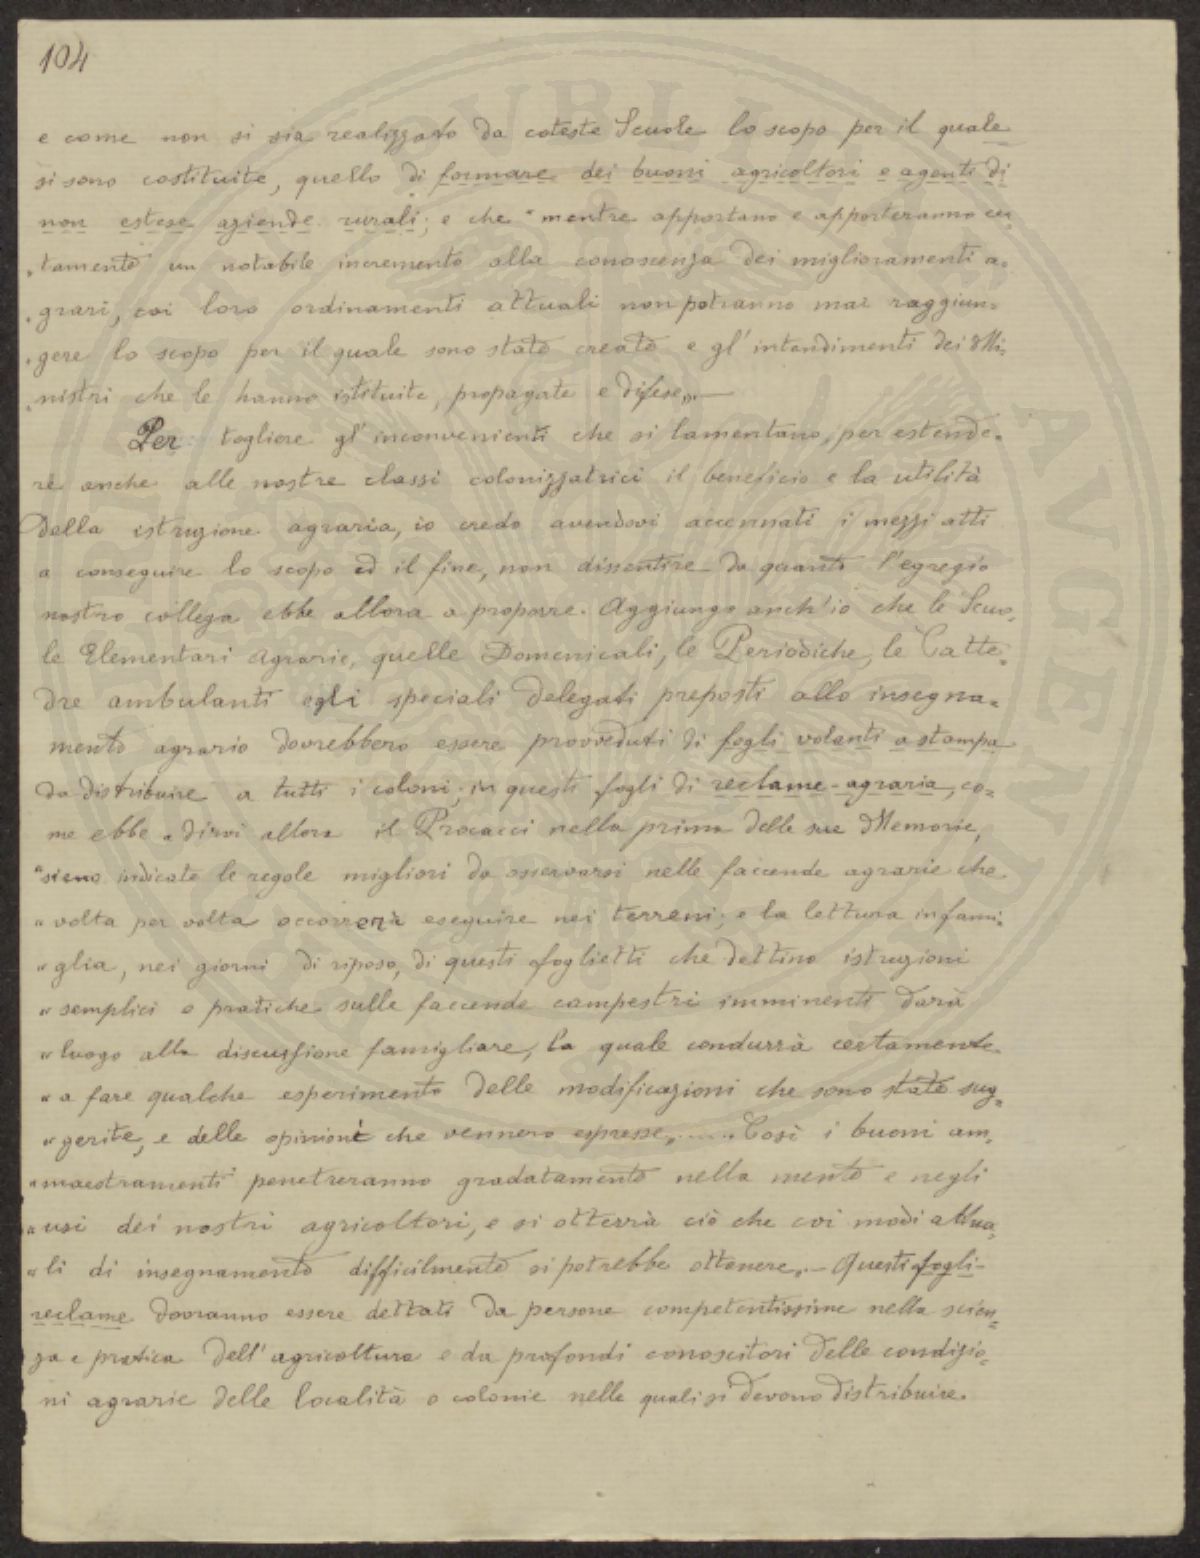 104
e come non si sia realizzato da coteste Scuole lo scopo per il quale
si sono costituite, quello di formare dei buoni agricoltori e agenti di
non estese aziende rurali; e che "mentre apportano e apporteranno cer=
"tamente un notabile incremento alla conoscenza dei miglioramenti a=
"grari, coi loro ordinamenti attuali non potranno mai raggiun=
"gere lo scopo per il quale sono state create e gl'intendimenti dei Mi=
"nistri che le hanno istituite, propagate e difese„.—
Per togliere gl'inconvenienti che si lamentano, per estende=
re anche alle nostre classi colonizzatrici il beneficio e la utilità
della istruzione agraria, io credo avendovi accennati i mezzi atti
a conseguire lo scopo ed il fine, non dissentire da quanto l'egregio
nostro collega ebbe allora a proporre. Aggiungo anch'io che le Scuo=
le Elementari Agrarie, quelle Domenicali, le Periodiche, le Catte=
dre ambulanti egli speciali delegati preposti allo insegna=
mento agrario dovrebbero essere provveduti di fogli volanti a stampa
da distribuire a tutti i coloni; in questi fogli di reclame-agraria, co=
me ebbe a dirvi allora il Procacci nella prima delle sue Memorie,
"sieno indicate le regole migliori da osservarsi nelle faccende agrarie che
"volta per volta occorrerà eseguire nei terreni; e la lettura in fami=
"glia, nei giorni di riposo, di questi foglietti che dettino istruzioni
"semplici e pratiche sulle faccende campestri imminenti darà
"luogo alla discussione famigliare, la quale condurrà certamente
"a fare qualche esperimento delle modificazioni che sono state sug=
"gerite, e delle opinioni che vennero espresse,......Così i buoni am=
"maestramenti penetreranno gradatamente nella mente e negli
"usi dei nostri agricoltori, e si otterrà ciò che coi modi attua=
"li di insegnamento difficilmente si potrebbe ottenere„.— Questi fogli-
reclame dovranno essere dettati da persone competentissime nella scien=
za e pratica dell'agricoltura e da profondi conoscitori delle condizio=
ni agrarie delle località o colonie nelle quali si devono distribuire.